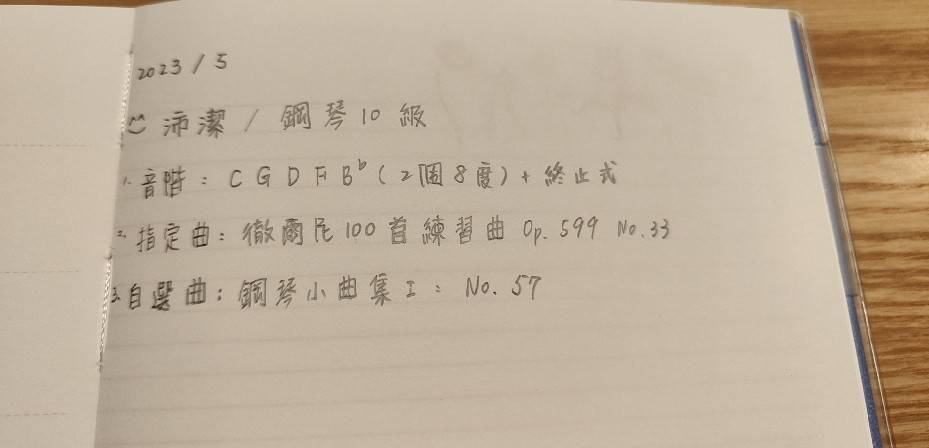 2023 / 5
沛潔 / 鋼琴10級
1. 音階：C G D F B♭（2個8度）+ 終止式
2. 指定曲：徹爾尼100首練習曲 Op. 599 No.33
3. 自選曲：鋼琴小曲集I：No. 57